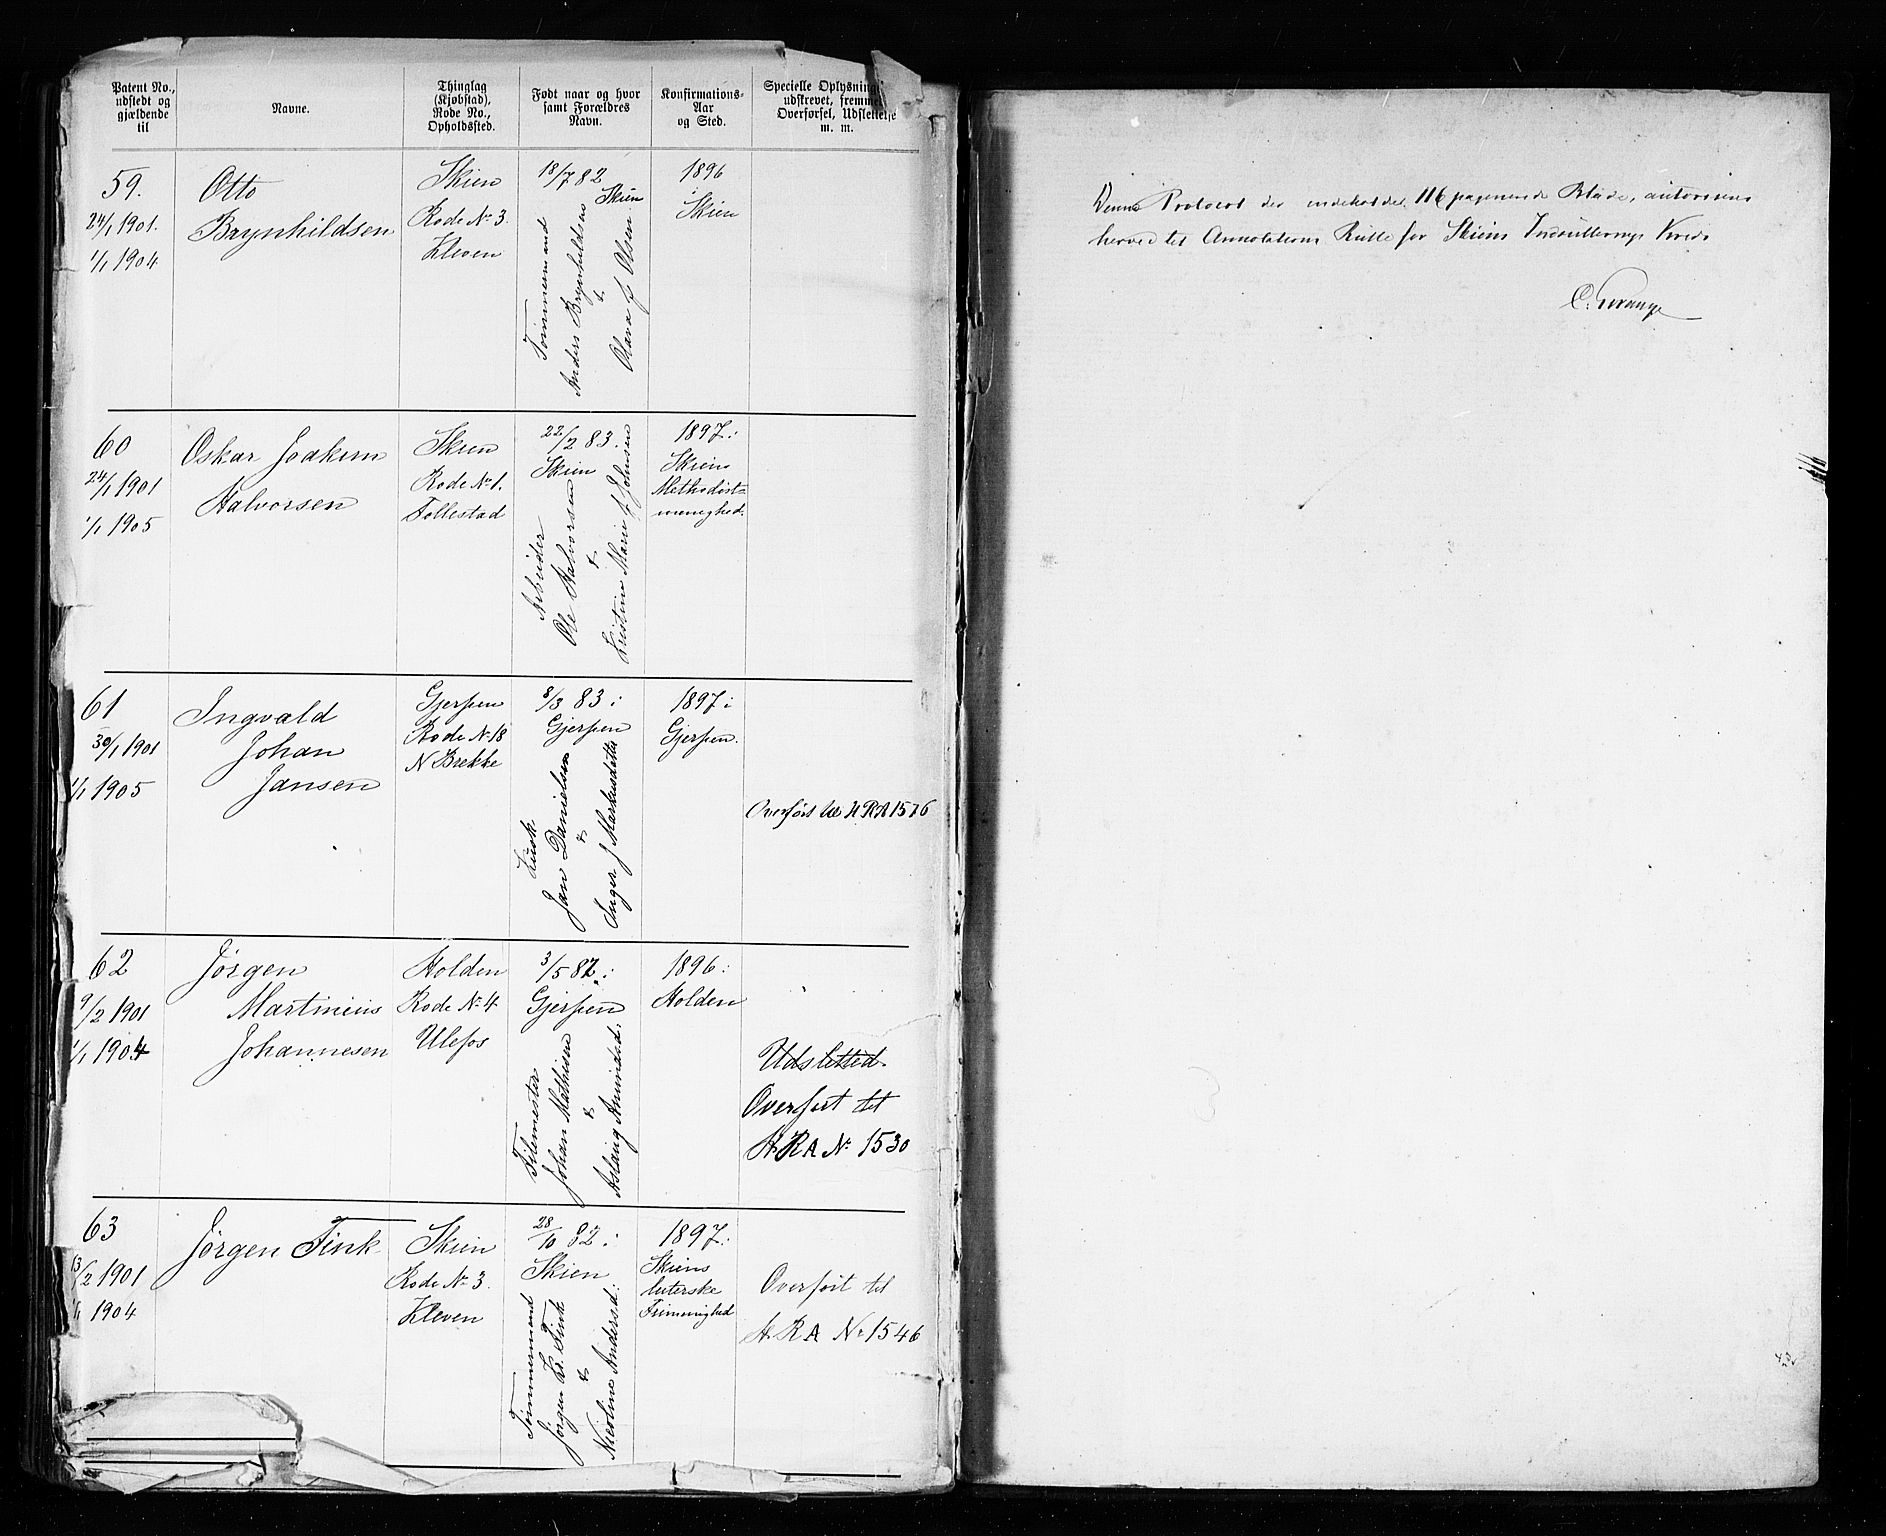 Patent No., udstedt og gjældende til
Navne.
Thinglag (Kjøbstad), Rode No., Opholdssted.
Født naar og hvor samt Forældres Navn.
Konfirmations-Aar og Sted.
Specielle Oplysning
udskrevet, fremme
Overførsel, Udslettelse
m. m.
59.
24/1 1901.
1/1 1904
Otto
Brynhildsen
Skien
Rode No 3.
Kleven
18/7 82
Skien
Tømmermand
Anders Brynhildsen
&
Olava f Olsen
1896
i
Skien
60
24/1 1901
1/1 1905
Oskar Joakim
Halvorsen
Skien
Rode No 1.
Follestad
22/2 83.
Skien
Arbeider
Ole Halvorsen
&
Kristine Marie f Johnsen
1897:
Skiens
Methodist=
menighed.
61
30/1 1901
1/1 1905
Ingvald
Johan
Jansen
Gjerpen
Rode No 18
N Brekke
8/3 83 i
Gjerpen
Kusk
Jan Danielsen
&
Inger f Markusdatter
1897 i
Gjerpen.
Overført til H R A 1576
62
9/2 1901
1/1 1904
Jørgen
Martinius
Johannesen
Holden
Rode No 4
Ulefos
3/5 82 i
Gjerpen
Filemester
Johan Mathisen
&
Aslaug Amundsd.
1896:
Holden
Udsletted.
Overført til
H. R A No 1530
63
13/2 1901
1/1 1904
Jørgen Fink
Skien
Rode No 3.
Kleven
28/10 82 i
Skien
Tømmermand
Jørgen Kr. Fink
&
Nicoline Andersd.
1897:
Skiens
luterske
Frimenighed
Overført til
H. R A No 1546
Denne Protocol der indeholder 116 paginerede Blade, autoriseres
herved til Annotations Rulle for Skiens Indrullerings Kreds